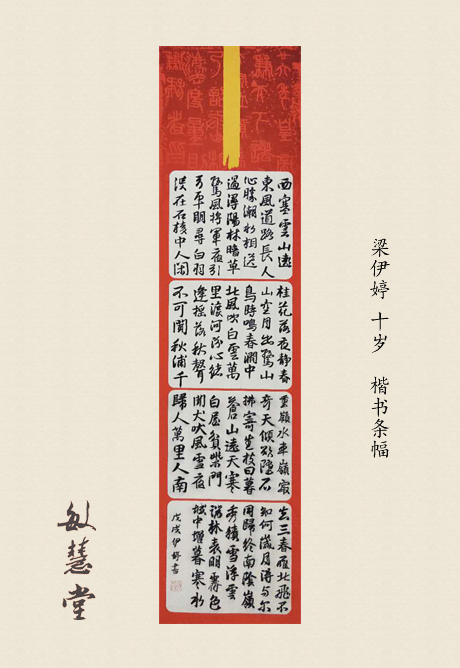 西塞雲山遠
東風道路長人
心勝潮水相送
過潯陽林暗草
驚風將軍夜引
弓平明尋白羽
沒在石棱中人閑
桂花落夜靜春
山空月出驚山
鳥時鳴春澗中
北風吹白雲萬
里渡河汾心緒
逢搖落秋聲
不可聞秋浦千
重嶺水車嶺最
奇天傾欲墮石
拂寄生枝日暮
蒼山遠天寒
白屋貧柴門
聞犬吠風雪夜
歸人萬里人南
去三春雁北飛不
知何歲月得與爾
同歸終南陰嶺
秀積雪浮雲
端林表明霽色
城中增暮寒
戊戌伊婷書
梁伊婷 十岁 楷书条幅
敏慧堂